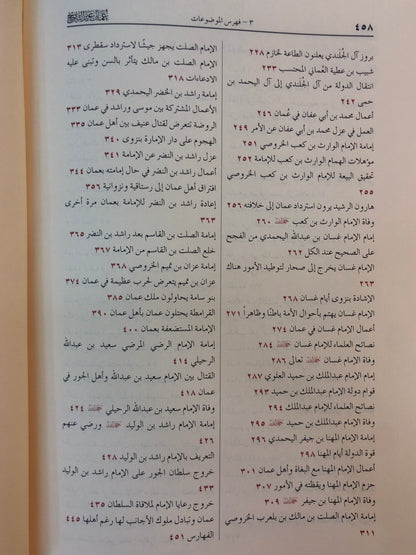 ٤٥٨
٣ - فهرس الموضوعات
بروز آل الجُلَندي يعلنون الطاعة لخازم ٢٢٨
شبيب بن عطية العُماني المحتسب ٢٣٣
انتقال الدولة من آل الجُلَندي إلى آل اليحمد بن
حمى ٢٤٢
أعمال محمد بن أبي عفان في عُمان ٢٤٦
العمل في عزل محمد بن أبي عفان عن الأمر ٢٤٩
إمامة الإمام الوارث بن كعب الخروصي ٢٥١
مؤهلات الهمام الوارث بن كعب للإمامة ٢٥٢
تحقيق البيعة للإمام الوارث بن كعب الخروصي
٢٥٥
هارون الرشيد يرون استرداد عمان إلى خلافته ٢٥٦
وفاة الإمام الوارث بن كعب ٢٦٠
إمام الإمام غسان بن عبدالله اليحمدي من الفجح
على الصحيح عند الكل ٢٦٢
الإمام غسان يخرج إلى صحار لتوطيد الأمور هناك
٢٦٣
الإشادة بنزوى أيام غسان ٢٦٨
الإمام غسان يهتم بأحوال الأمة باطنًا وظاهراً ٢٧١
أعمال الإمام غسان في عمان ٢٧٤
نصائح العلماء للإمام غسان ٢٨٤
وفاة الإمام غسان تعالى ٢٨٦
إمامة الإمام عبدالملك بن حميد العلوي ٢٨٧
قوام دولة الإمام عبدالملك بن حميد ٢٩٣
نصائح العلماء للإمام عبدالملك ٢٩٤
وفاة الإمام عبدالملك بن حميد ٢٩٥
إمامة الإمام المهنا بن جيفر اليحمدي ٢٩٦
قوة الدولة أيام المهنا ٢٩٨
أعمال الإمام المهنا مع البغاة وأهل عمان ٣٠١
حزم الإمام المهنا ويقظته في الأمور ٣٠٧
وفاة الإمام المهنا بن جيفر ٣٠٩
إمامة الإمام الصلت بن مالك بن بلعرب الخروصي
٣١١
الإمام الصلت يجهز جيشًا لاسترداد سقطرى ٣١٣
الإمام الصلت بن مالك يتأثر بالسن وتبنى عليه
الادعاءات ٣١٨
إمامة راشد بن الخضر اليحمدي ٣٢٩
الأعمال المشتركة بين موسى وراشد في عمان ٣٣٣
الروضة تتعرض لقتال عنيف بين أهل عمان ٣٣٥
الهجوم على دار الإمارة بنزوى ٣٤٠
عزل راشد بن النضر عن الإمامة ٣٤١
أعمال الإمام راشد بن النضر في حال إمامته بعمان ٣٤٤
افتراق أهل عمان إلى رستاقية ونزوانية ٣٥٦
إعادة راشد بن النضر للإمامة بعمان مرة أخرى
٣٦٣
إمامة الصلت بن القاسم بعد راشد بن النضر ٣٦٥
خلع الصلت بن القاسم من الإمامة ٣٦٧
إمامة عزان بن تميم الخروصي ٣٦٨
عزان بن تميم يتعرض لحرب عظيمة في عمان ٣٧٤
بنو سامة يحاولون ملك عمان ٣٨٥
القرامطة يحتلون عمان بأهل عمان ٣٩٠
الإمامة المستضعفة بعمان ٤٠٠
إمامة الإمام الرضي المرضي سعيد بن عبدالله
الرحيلي ٤١٤
القتال بين الإمام سعيد بن عبدالله وأهل الجور في
عمان ٤١٨
وفاة الإمام سعيد بن عبدالله الرحيلي ٤٢٤
إمامة الإمام راشد بن الوليد ورضي عنهم
٤٢٦
التعريف بالإمام راشد بن الوليد ٤٢٨
خروج سلطان الجور على الإمام راشد بن الوليد
٤٣٣
خروج رعايا الإمام لملاقاة السلطان ٤٣٥
عمان وتبادل ملوك الأجانب لها رغم أهلها ٤٤٥
الفهارس ٤٥١